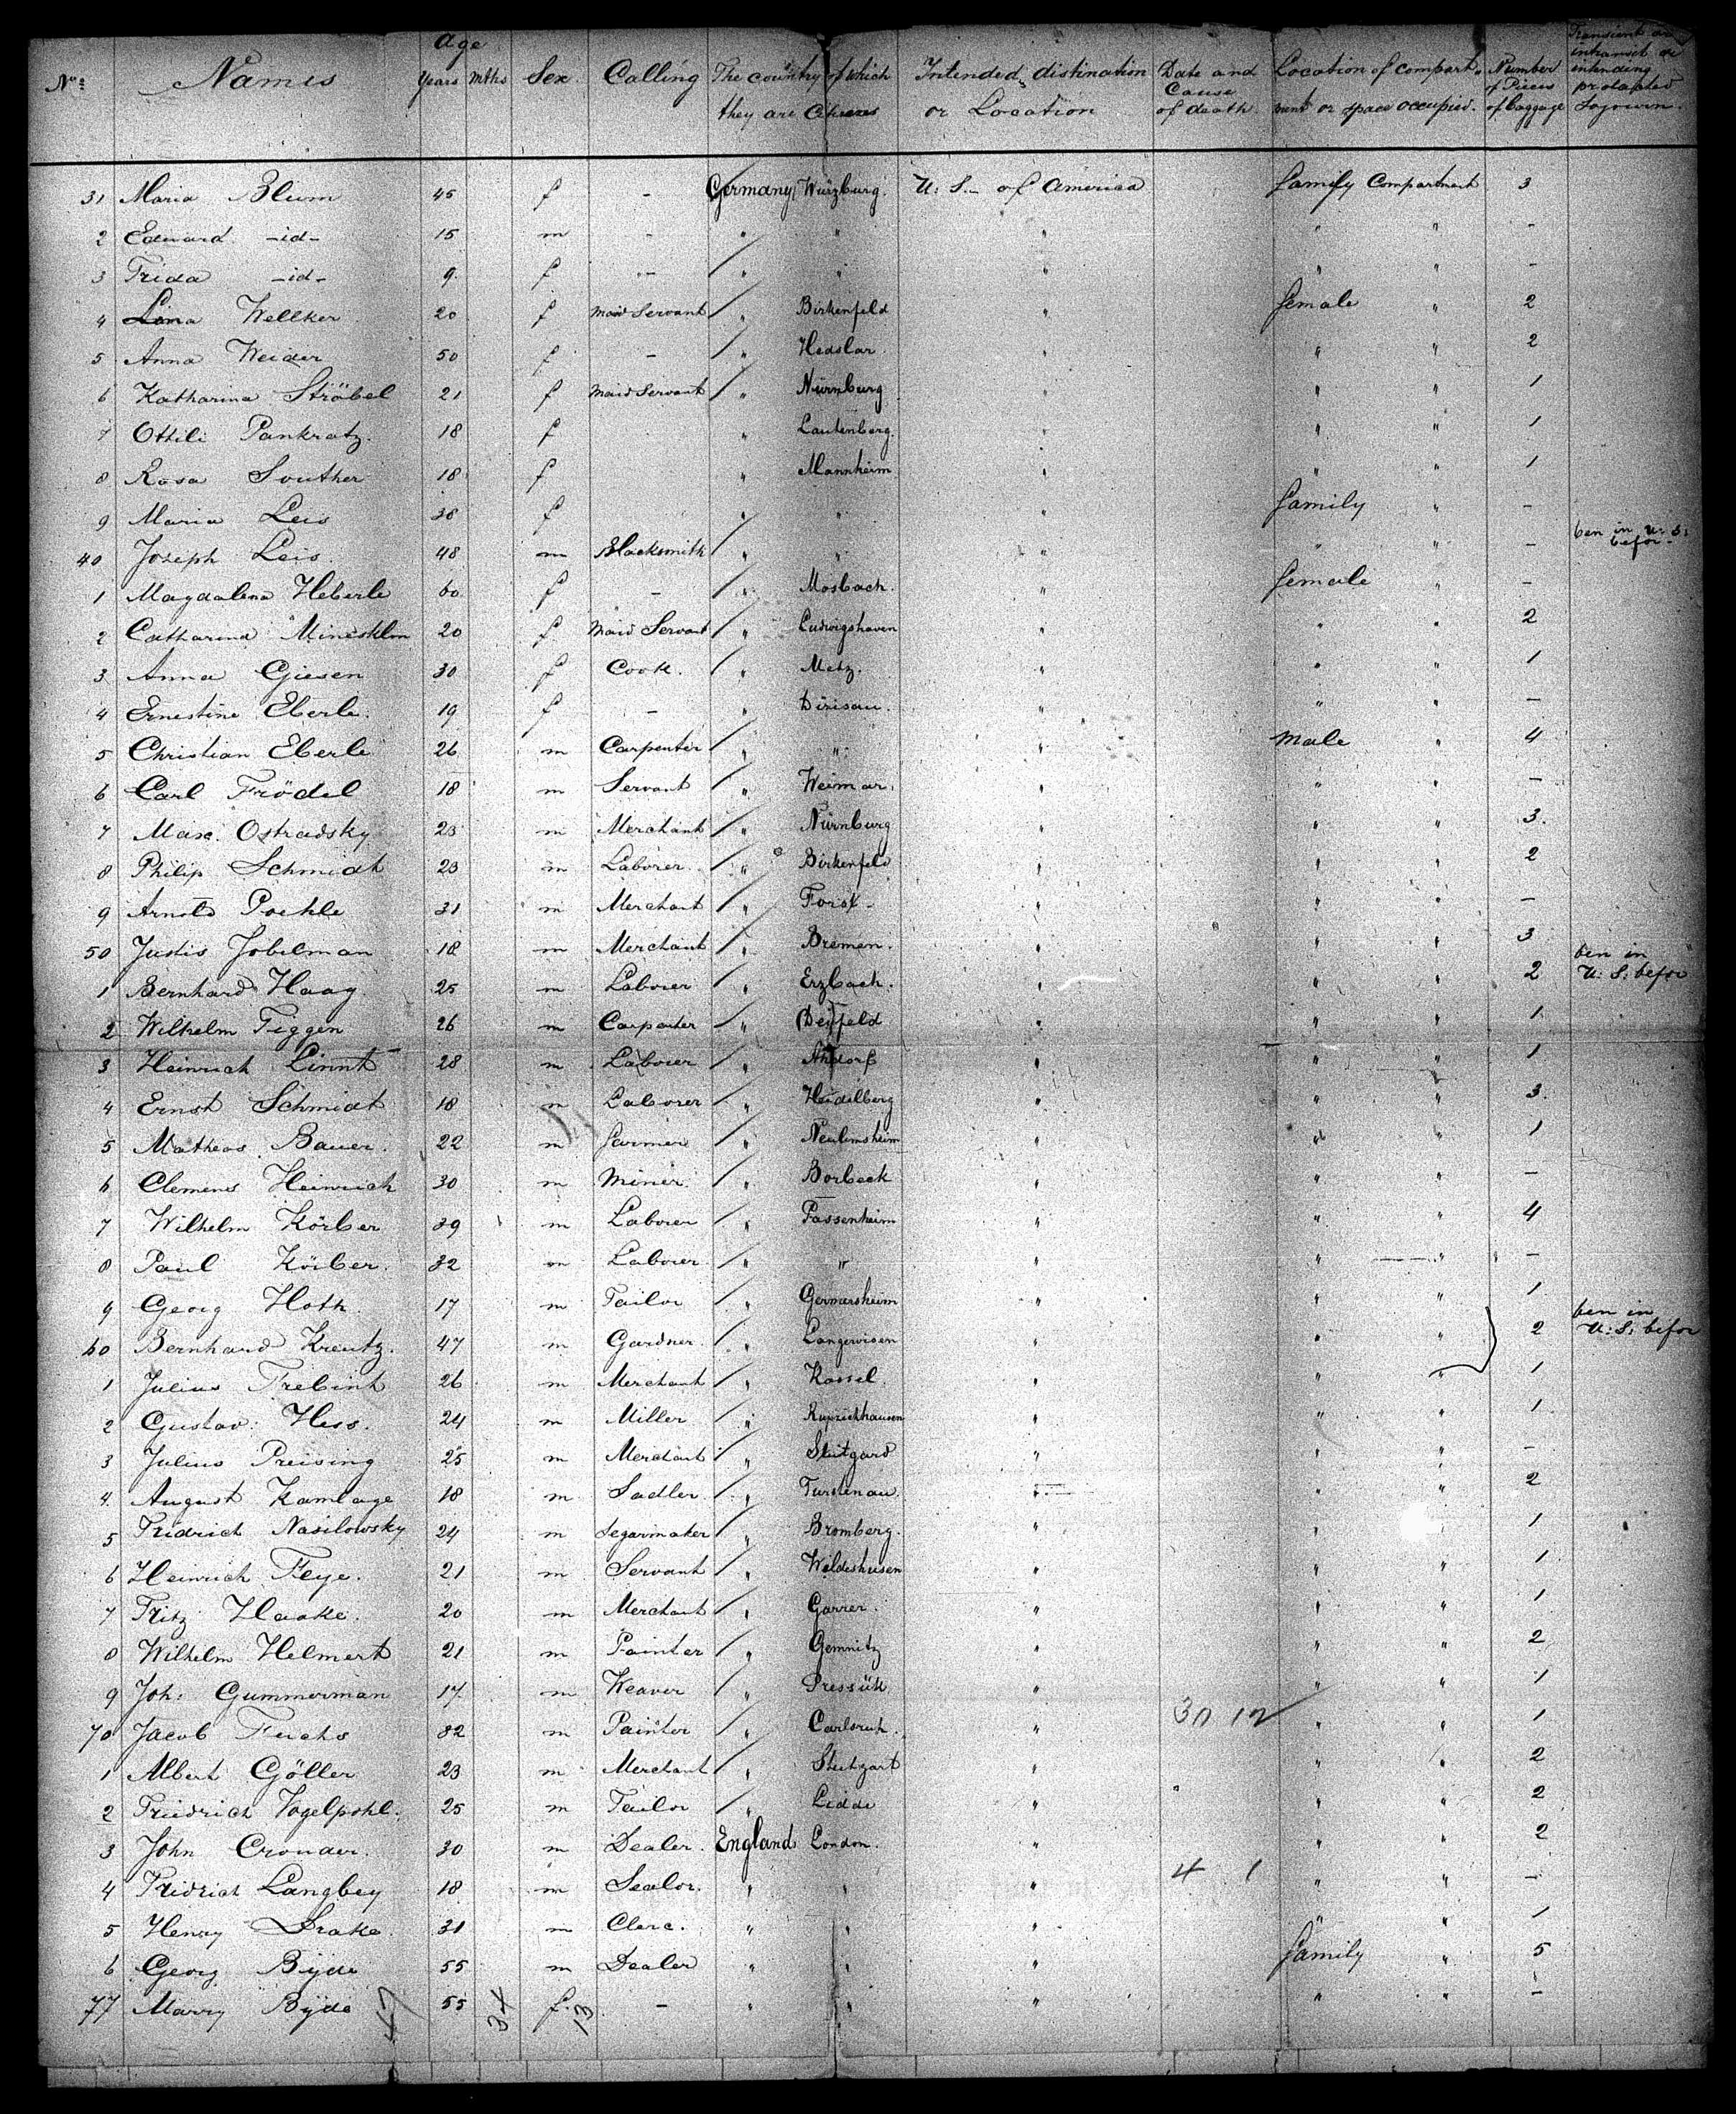 No: Names Age Years Mths Sex Calling The country of which they are Citizens Intended distination or Location Date and Cause of death. Location of compartment or space occupied. Number of Pieces of Baggage Transient or intransit or intending protacted Sojourn.
31 Maria Blum 45 f - Germany Würzburg. U: S. of America family Compartment 3
2 Edward -id- 15 m - " " " " " -
3 Frida -id- 9 f - " " " " " -
4 Lina Wellker 20 f Maid Servant " Birkenfeld " female " 2
5 Anna Weider 50 f - " Hedslar " " " 2
6 Katharina Ströbel 21 f Maid Servant " Nürnburg " " " 1
7 Ottili Pankratz. 18 f " Lautenberg. " " " 1
8 Rosa Souther 18 f " Mannheim " " " 1
9 Maria Leis 38 f " " " family " -
40 Joseph Leis. 48 m Blacksmith " " " " " - ben in U: S: befor
1 Magdalena Heberle 60 f - " Mosbach. " female " -
2 Catharina 20 f Maid Servant " Ludwigshaven " " " 2
3 Anna Giesen 30 f Cook. " Metz. " " " 1
4 Ernestine Eberle. 19 f - " Dirisau. " " " -
5 Christian Eberle 26 m Carpenter " " " Male " 4
6 Carl Frödel 18 m Servant " Weimar. " " " -
7 Max. Ostradsky 23 m Merchant " Nürnburg " " " 3.
8 Philip Schmidt 23 m Laborer. " Birkenfeld " " " 2
9 Arnold Poehle 31 m Merchant " Forst " " " -
50 Justis Jobelman 18 m Merchant " Bremen. " " " 3
1 Bernhard Haag 25 m Laborer " Erzbach. " " " 2 ben in U: S: befor
2 Wilhelm Figgen 26 m Carpenter " Deifeld " " " 1
3 Heinrich Linnt 28 m Laborer " " " " 1
4 Ernst Schmidt 18 m Laborer " Heidelberg " " " 3.
5 Matheas Bauer. 22 m farmer " " " " 1
6 Clemens Heinrich 30 m Miner. " Borbeck " " " -
7 Wilhelm Körber 39 m Laborer " Passenheim " " " 4
8 Paul Körber. 32 m Laborer " " " " " -
9 Georg Hoth. 17 m Tailor " Germersheim " " " 1
60 Bernhard Kreutz. 47 m Gardner. " Langewisen " " " 2 ben in U: S: befor
1 Julius Frebint 26 m Merchant " Kassel. " " " 1
2 Gustav: Hess. 24 m Miller " Kuprichhausen " " " 1
3 Julius Preising 25 m Merchant " Stutgard " " " -
4. August Kamlage 18 m Sadler. " Furstenau. " " " 2
5 Fridrich Nasilowsky 24 m Segarmaker " Bromberg. " " " 1
6 Heinrich Feye. 21 m Servant " Weldeshusen " " " 1
7 Fritz Haake. 20 m Merchant " Garrer. " " " 1
8 Wilhelm Helmert 21 m Painter " Gemnitz " " " 2
9 Joh: Gummerman 17 m Weaver " Pressük " " " 1
70 Jacob Fuchs 32 m Painter " Carlsruh. " 30 12 " " 1
1 Albert Göller 23 m Merchant " Stutgart " " " 2
2 Friedrich Vogelpohl. 25 m Tailor " Lidde " " " 2
3 John Crouder. 30 m Dealer. England London. " " " 2
4 Fridrich Langbey 18 m Sealor. " " " 4 1 " " -
5 Henry Drake. 31 m Clerc. " " " " " 1
6 Georg Byde 55 m Dealer " " " family " 5
77 Marry Byde 55 f. - " " " " " -
47 34 13